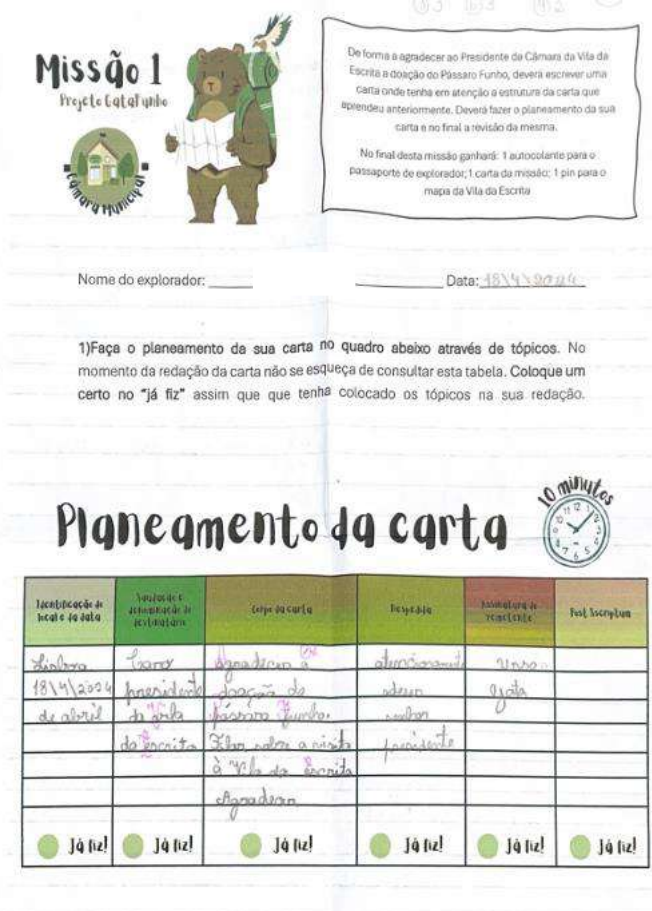 Missão 1
Projeto GataFunho
Câmara Municipal
De forma a agradecer ao Presidente da Câmara da Vila da
Escrita a doação do Pássaro Funho, deverá escrever uma
carta onde tenha em atenção a estrutura da carta que
aprendeu anteriormente. Deverá fazer o planeamento da sua
carta e no final a revisão da mesma.
No final desta missão ganhará: 1 autocolante para o
passaporte de explorador; 1 carta da missão; 1 pin para o
mapa da Vila da Escrita
Nome do explorador: Data: 18\4\2024
1)Faça o planeamento da sua carta no quadro abaixo através de tópicos. No
momento da redação da carta não se esqueça de consultar esta tabela. Coloque um
certo no "já fiz" assim que que tenha colocado os tópicos na sua redação.
10 minutos
Planeamento da carta
Identificação do local e da data
Saudação e denominação do destinatário
Corpo da carta
Despedida
Assinatura do remetente
Post Scriptum
Lisboa
18\4\2024
de abril
Caro
presidente
da vila
da Escrita
Agradecer a
doação do
pássaro Funho.
sobre a visita
à Vila da Escrita
Agradecer
senhor
presidente
Urso
Gata
Já fiz! Já fiz! Já fiz! Já fiz! Já fiz! Já fiz!